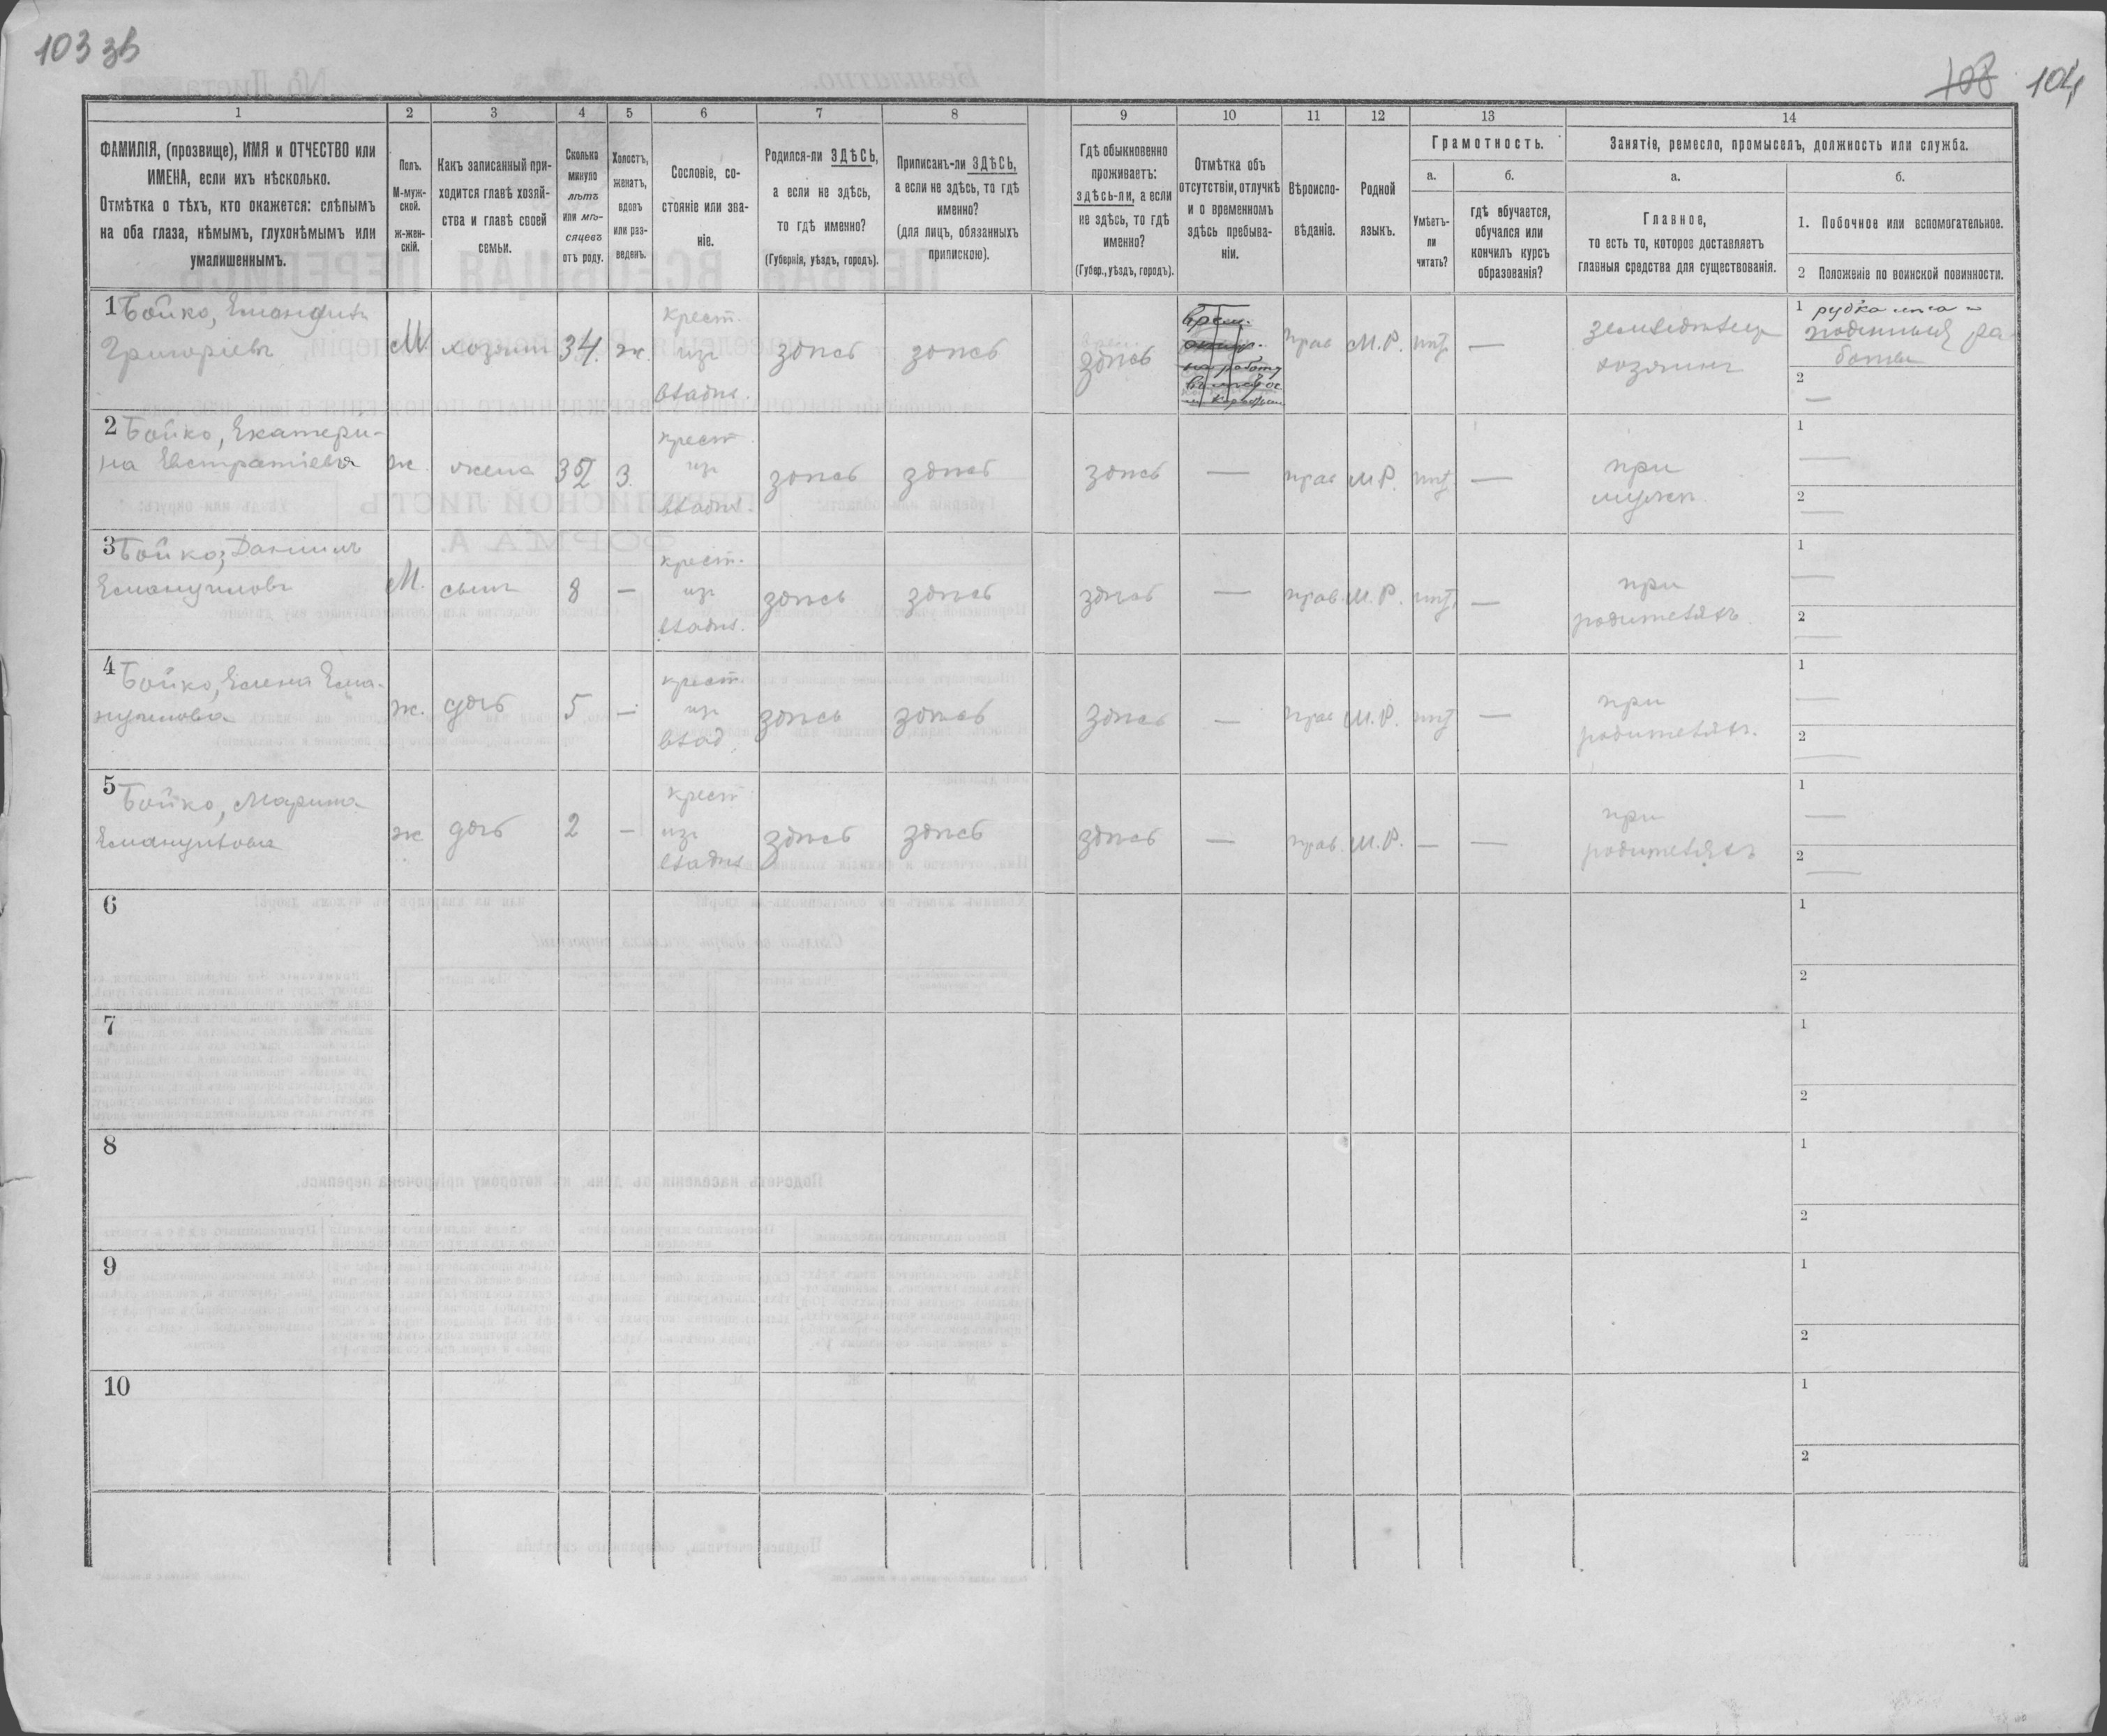 103 зв
108 104
1
2
3
4
5
6
7
8
9
10
11
12
13
14
ФАМИЛІЯ, (прозвище), ИМЯ и ОТЧЕСТВО или
ИМЕНА, если ихъ нѣсколько.
Отмѣтка о тѣхъ, кто окажется: слѣпымъ
на оба глаза, нѣмымъ, глухонѣмымъ или
умалишеннымъ.
Полъ.
М-муж-
ской.
ж-жен-
скій.
Какъ записанный при-
ходится главѣ хозяй-
ства и главѣ своей
семьи.
Сколько
минуло
лѣтъ
или мѣ-
сяцевъ
отъ роду.
Холостъ,
женатъ,
вдовъ
или раз-
веденъ.
Сословіе, со-
стояніе или зва-
ніе.
Родился-ли ЗДѢСЬ,
а если не здѣсь,
то гдѣ именно?
(Губернія, уѣздъ, городъ).
Приписанъ-ли ЗДѢСЬ,
а если не здѣсь, то гдѣ
именно?
(для лицъ, обязанныхъ
припискою).
Гдѣ обыкновенно
проживаетъ:
здѣсь-ли, а если
не здѣсь, то гдѣ
именно?
(Губер., уѣздъ, городъ).
Отмѣтка объ
отсутствіи, отлучкѣ
и о временномъ
здѣсь пребыва-
ніи.
Вѣроиспо-
вѣданіе.
Родной
языкъ.
Грамотность.
а.
Умѣетъ-
ли
читать?
б.
гдѣ обучается,
обучался или
кончилъ курсъ
образованія?
Занятіе, ремесло, промыселъ, должность или служба.
а.
Главное,
то есть то, которое доставляетъ
главныя средства для существованія.
б.
1. Побочное или вспомогательное.
2 Положеніе по воинской повинности.
1 Бойко, Емануилъ
Григоріевъ
М
хозяинъ
34.
ж.
крест.
изъ
владѣл.
здѣсь
здѣсь
здѣсь
прав
М.Р.
нѣт
—
земледѣлец
хозяинъ
1 рубка лѣса и
поденныя ра-
боты
2 —
2 Бойко, Екатери-
на Евстратіева
ж.
жена
35
З.
крест
изъ
владѣл.
здѣсь
здѣсь
здѣсь
—
прав
М.Р.
нѣт
—
при
мужѣ.
1 —
2 —
3 Бойко, Даниилъ
Емануиловъ
М.
сынъ
8
—
крест.
изъ
владѣл.
здѣсь
здѣсь
здѣсь
—
прав
М.Р.
нѣт
—
при
родителяхъ.
1 —
2 —
4 Бойко, Елена Ема-
нуилова
ж.
дочь
5
—
крест
изъ
влад.
здѣсь
здѣсь
здѣсь
—
прав
М.Р.
нѣт
—
при
родителяхъ.
1 —
2 —
5 Бойко, Марина
Емануилова
ж
дочь
2
—
крест
изъ
владѣл
здѣсь
здѣсь
здѣсь
—
прав.
М.Р.
—
—
при
родителяхъ
1 —
2 —
6
1
2
7
1
2
8
1
2
9
1
2
10
1
2